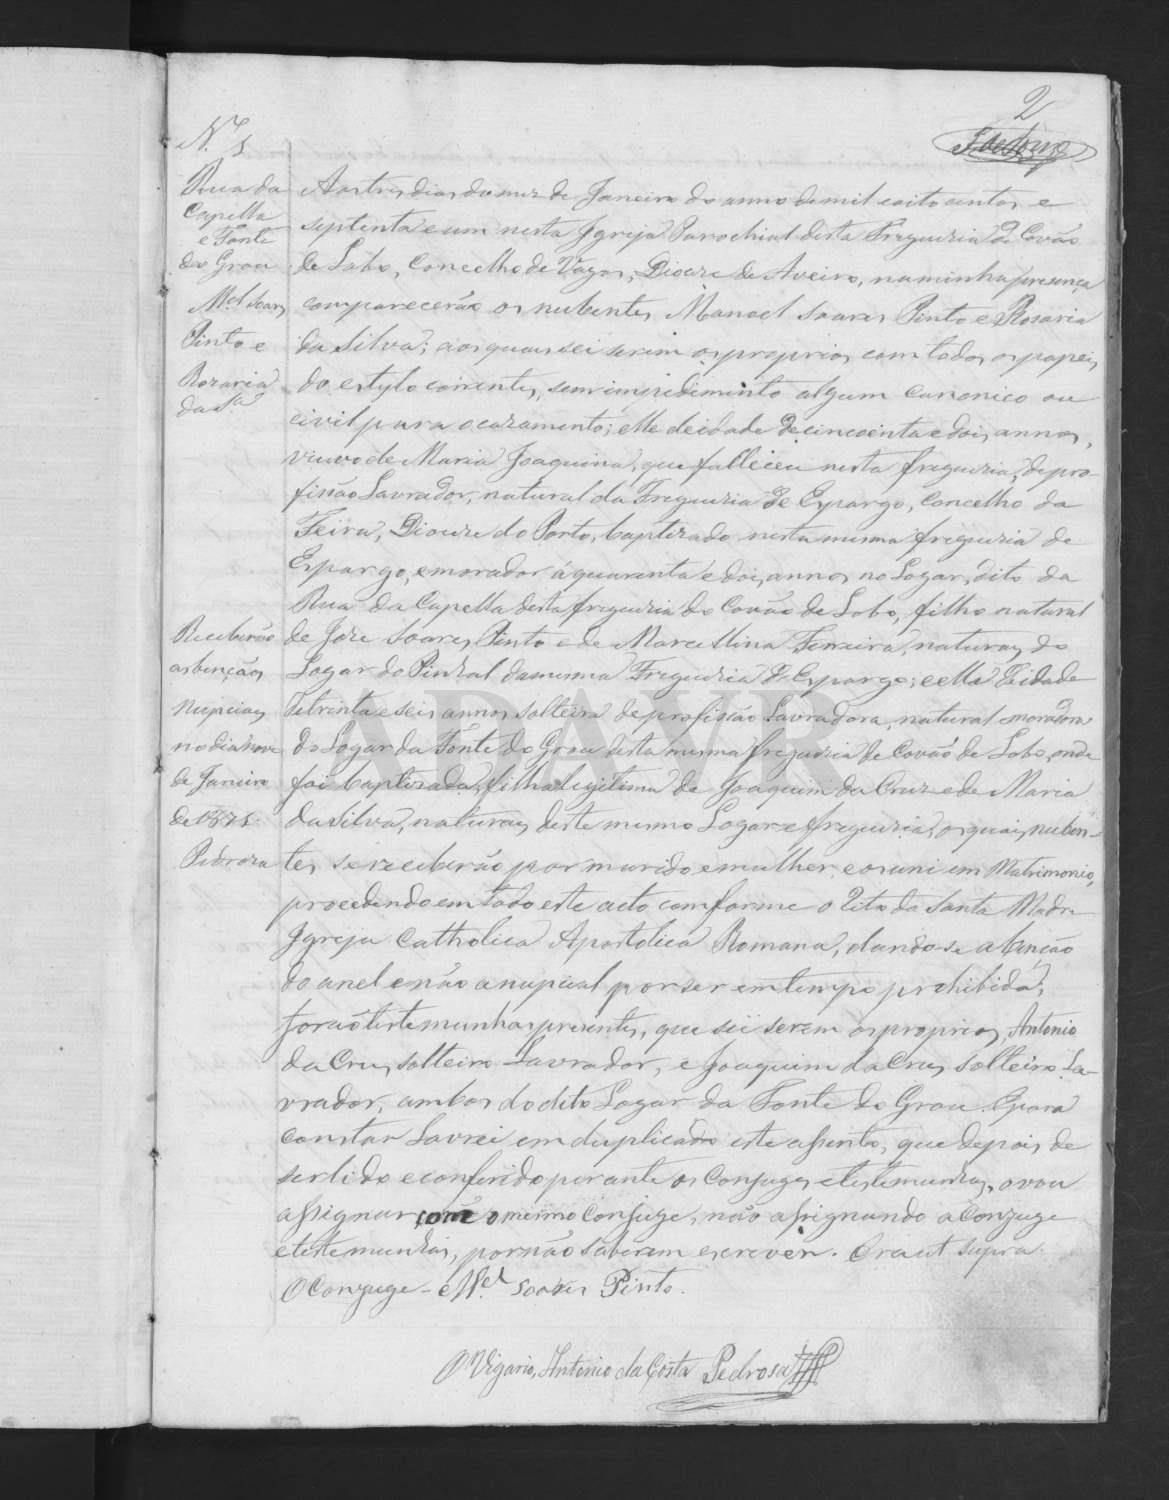 2
N.º 1
Rua da
Capella
e Fonte
do Grou
M.el Soares
Pinto e
Rozaria
da S.a
Aos tres dias do mez de Janeiro do anno de mil oito centos e
septenta e um nesta Igreja Parochial desta Freguezia do Covão
de Lobo, Concelho de Vagos, Diocese de Aveiro, na minha presença
comparecerão os nubentes Manoel Soares Pinto e Rosaria
da Silva; aos quaes sei serem os proprios, com todos os papeis
do estylo correntes, sem impedimento algum canonico ou
civil para o cazamento; elle de idade de cincoenta e dois annos,
viuvo de Maria Joaquina, que falleceu nesta freguezia, de pro-
fissão Lavrador, natural da Freguezia de Espargo, Concelho da
Feira, Diocese do Porto, baptizado nesta mesma freguezia de
Espargo, e morador á quarenta e dois annos no Logar, dito da
Rua da Capella desta freguezia do Covão de Lobo, filho natural
de Joze Soares Pinto e de Marcellina Ferreira, naturaes do
Logar do Pinhal da mesma Freguezia d'Espargo; e ella d'idade
de trinta e seis annos solteira de profissão Lavradora, natural e moradora
do Logar da Fonte do Grou desta mesma freguezia de Covão de Lobo, onde
foi baptizada, filha legitima de Joaquim da Cruz e de Maria
da Silva, naturaes deste mesmo Logar e freguezia, os quaes nuben-
tes se receberão por marido e mulher, e os uni em Matrimonio,
procedendo em todo este acto comforme o Rito da Santa Madre
Igreja Catholica Apostolica Romana, dando-se a benção
do anel e não a nupcial por ser em tempo prohibido,
forão testemunhas presentes, que sei serem os proprios, Antonio
da Cruz, solteiro Lavrador, e Joaquim da Cruz solteiro La-
vrador, ambos do dito Logar da Fonte do Grou. E para
constar Lavrei em duplicado este assento, que depois de
ser lido e conferido perante os Conjuges e testemunhas, o vou
assignar com o mesmo Conjuge, não assignando a Conjuge
e testemunhas, por não saberem escrever. Era ut supra.
O Conjuge - M.el Soares Pinto.
O Vigario, Antonio da Costa Pedrosa
Receberão
as benção
nupciaes
no dia nove
de Janeiro
de 1871.
Pedroza